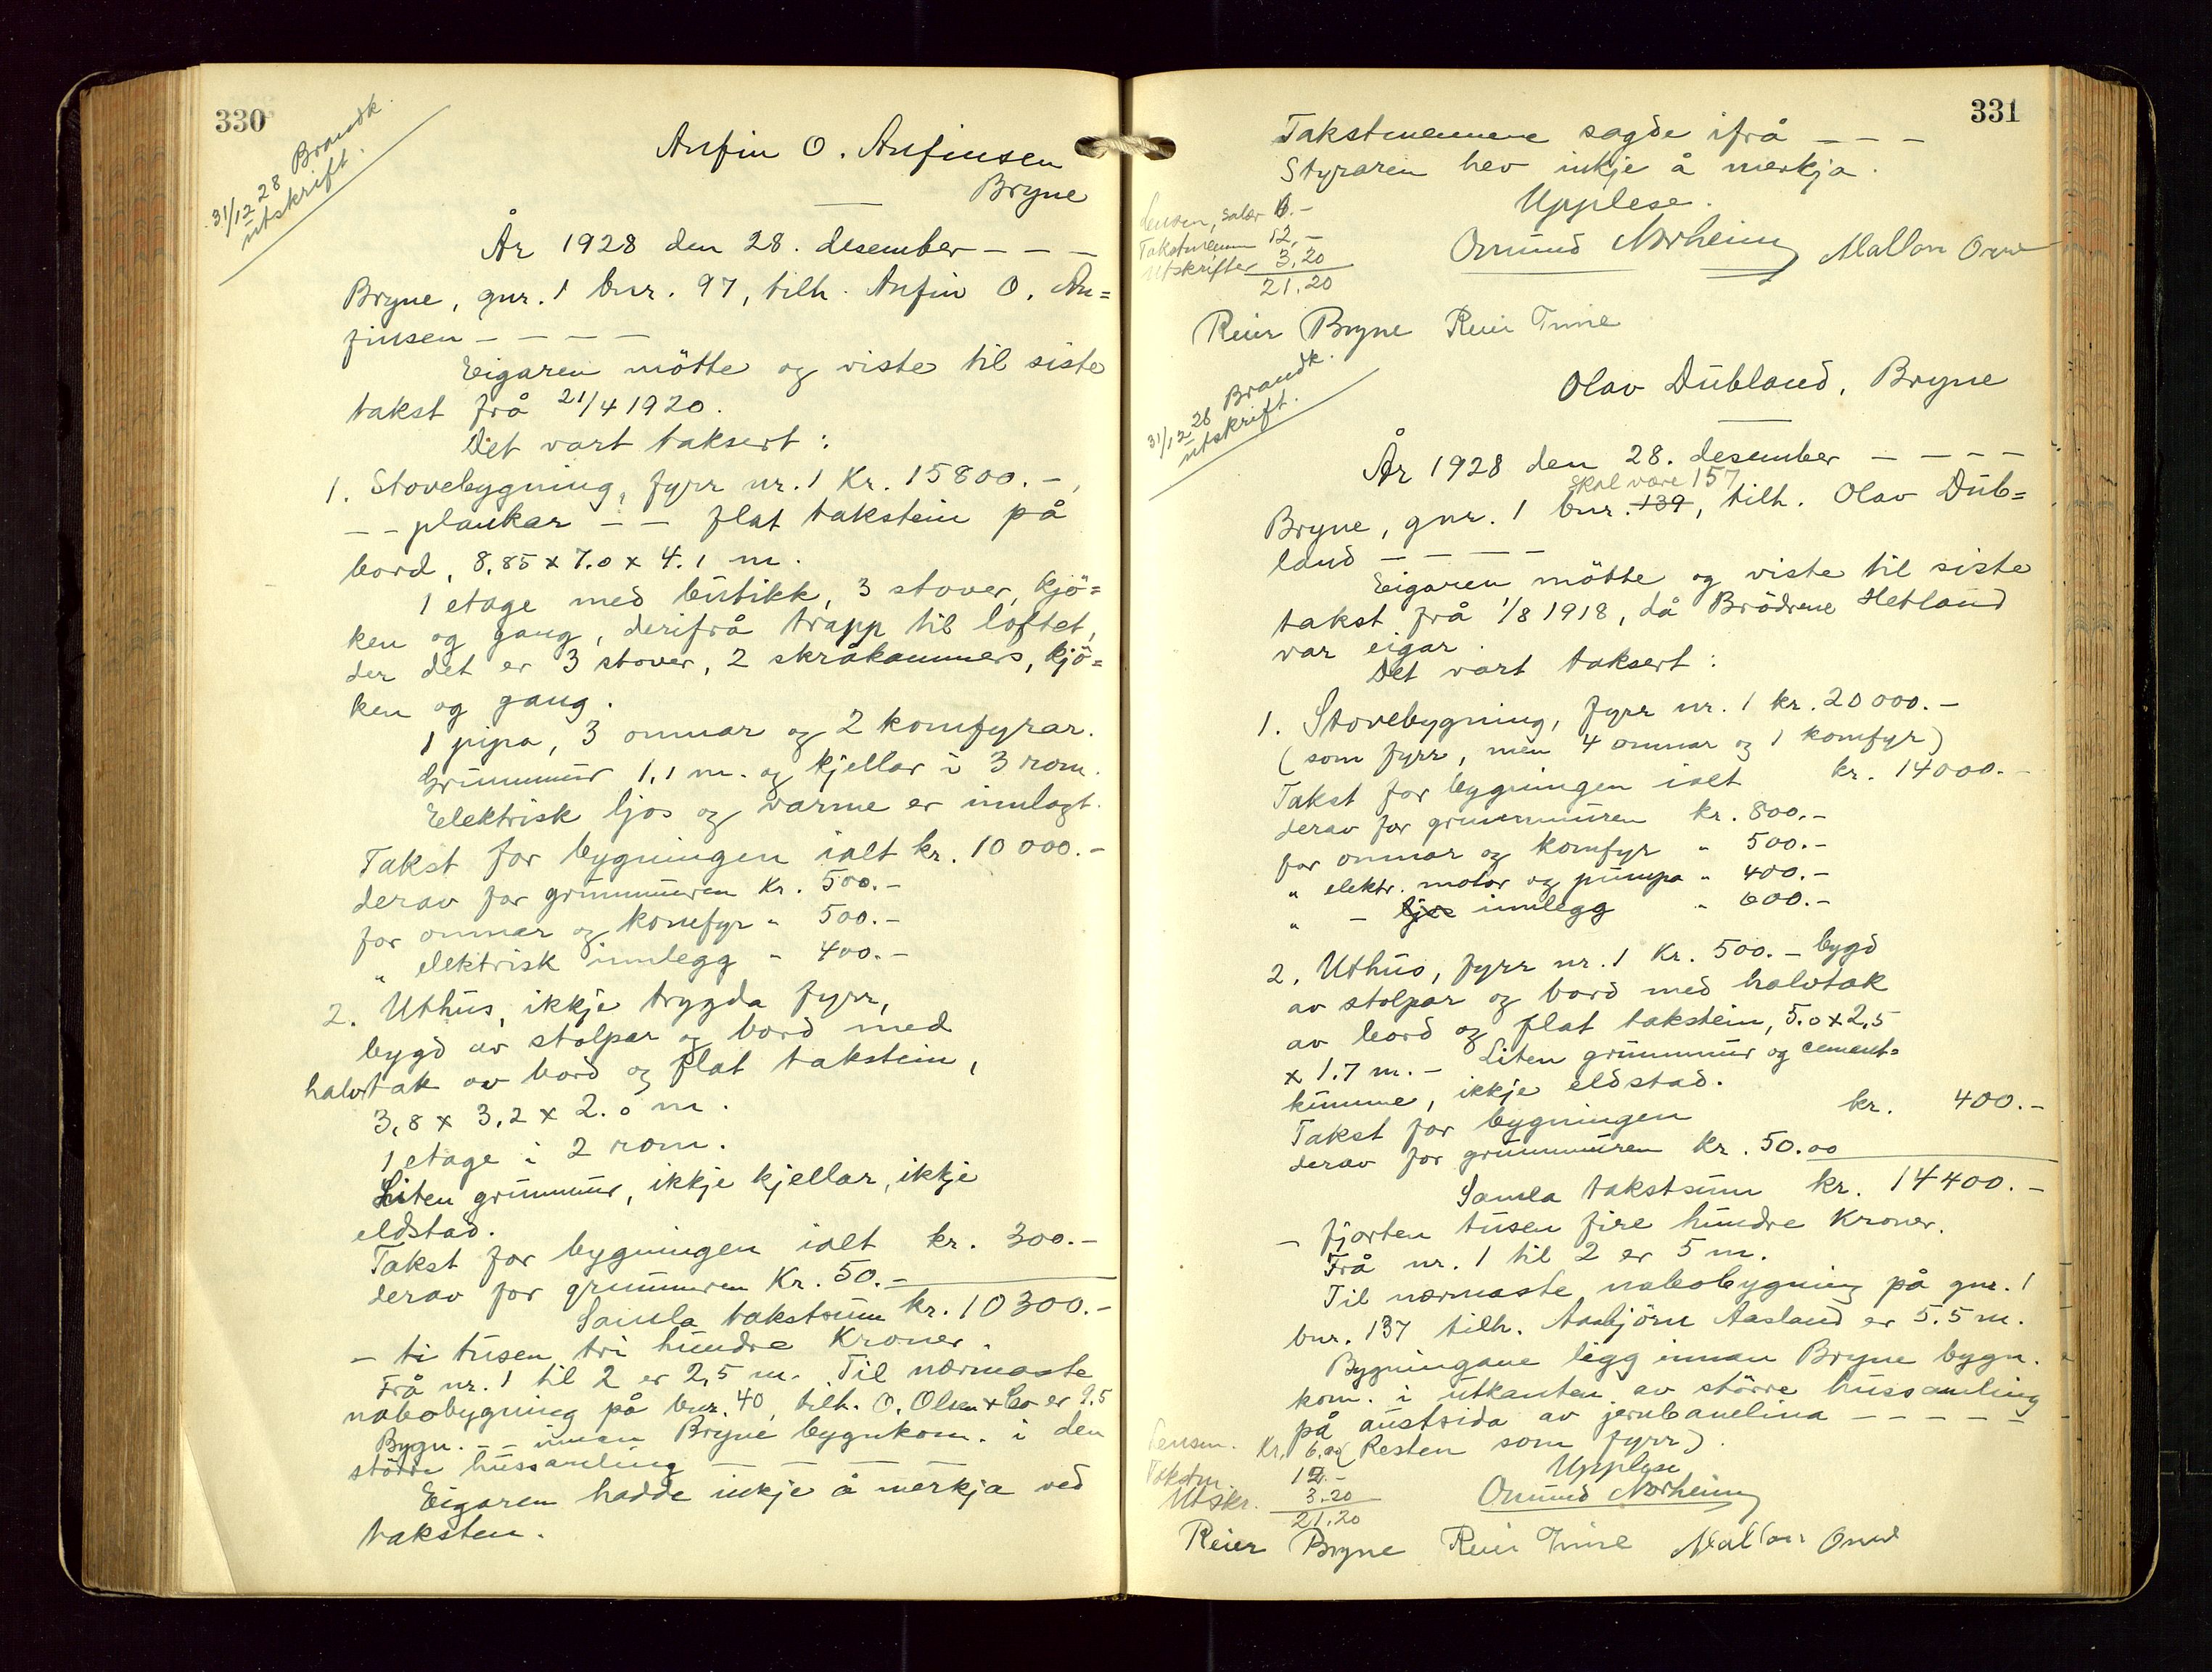 330
31/12 28 Brandk.
utskrift.
Anfin O. Anfinsen
Bryne
År 1928 den 28. desember - - -
Bryne, gnr. 1 bnr. 97, tilh. Anfin O. An=
finsen - - - -
Eigaren mötte og viste til siste
takst frå 21/4 1920.
Det vart taksert:
1. Stovebygning, fyrr nr. 1 Kr. 15800.-,
- - plankar - - flat takstein på
bord, 8.85 x 7.0 x 4.1 m.
1 etage med butikk, 3 stover, kjö=
ken og gang, derifrå trapp til loftet,
der det er 3 stover, 2 skråkammers, kjö=
ken og gang.
1 pipa, 3 omnar og 2 komfyrar.
Grunnmur 1,1 m. og kjellar i 3 rom.
Elektrisk ljos og varme er innlagt.
Takst for bygningen ialt kr. 10 000.-
derav for grunnmuren Kr. 500.-
for omnar og komfyr " 500.-
" elektrisk innlegg " 400.-
2. Uthus, ikkje trygda fyrr,
bygd av stolpar og bord med
halvtak av bord og flat takstein,
3,8 x 3,2 x 2.0 m.
1 etage i 2 rom.
Liten grunnmur, ikkje kjellar, ikkje
eldstad.
Takst for bygningen ialt kr. 300.-
derav for grunnmuren Kr. 50.-
Samla takstsum kr. 10300.-
- ti tusen tri hundre Kroner.
Frå nr. 1 til 2 er 2,5 m. Til nærmaste
nabobygning på bnr. 40, tilh. O. Olsen & Co er 9.5
Bygn. - - innan Bryne bygnkom. i den
större hussamling - - - -
Eigaren hadde inkje å merkja ved
taksten.
331
Takstmennene sagde ifrå - - -
Styraren hev inkje å merkja.
Upplese.
Lensm, salær 6.-
Takstmenn 12.-
Utskrifter 3.20
21.20
Omund Norheim
Reier Bryne Reier Tune
31/12 28 Brandk.
utskrift.
Olav Dubland, Bryne
År 1928 den 28. desember - - - -
skal være 157
Bryne, gnr. 1 bnr. 139, tilh. Olav Dub=
land - - - -
Eigaren mötte og viste til siste
takst frå 1/8 1918, då Brödrene Hetland
var eigar.
Det vart taksert:
1. Stovebygning, fyrr nr. 1 kr. 20000.-
(som fyrr, men 4 omnar og 1 komfyr)
Takst for bygningen ialt kr. 14000.-
derav for grunnmuren kr. 800.-
for omnar og komfyr " 500.-
" elektr. motor og pumpa " 400.-
" - ljos innlegg " 600.-
2. Uthus, fyrr nr. 1 Kr. 500.- bygd
av stolpar og bord med halvtak
av bord og flat takstein, 5.0 x 2,5
x 1.7 m. - Liten grunnmur og cement=
kumme, ikkje eldstad.
Takst for bygningen kr. 400.-
derav for grunnmuren kr. 50.00
Samla takstsum kr. 14400.-
- fjorten tusen fire hundre Kroner.
Frå nr. 1 til 2 er 5 m.
Til nærmaste nabobygning på gnr. 1
bnr. 137 tilh. Asbjörn Aasland er 5.5 m.
Bygningane ligg innan Bryne bygn.
kom. i utkanten av större hussamling
på austsida av jernbanelina - - - - -
(Resten som fyrr).
Lensm. Kr. 6.00
Takstm. 12.-
Utskr. 3.20
21.20
Upplese
Omund Norheim
Reier Bryne Reier Tune